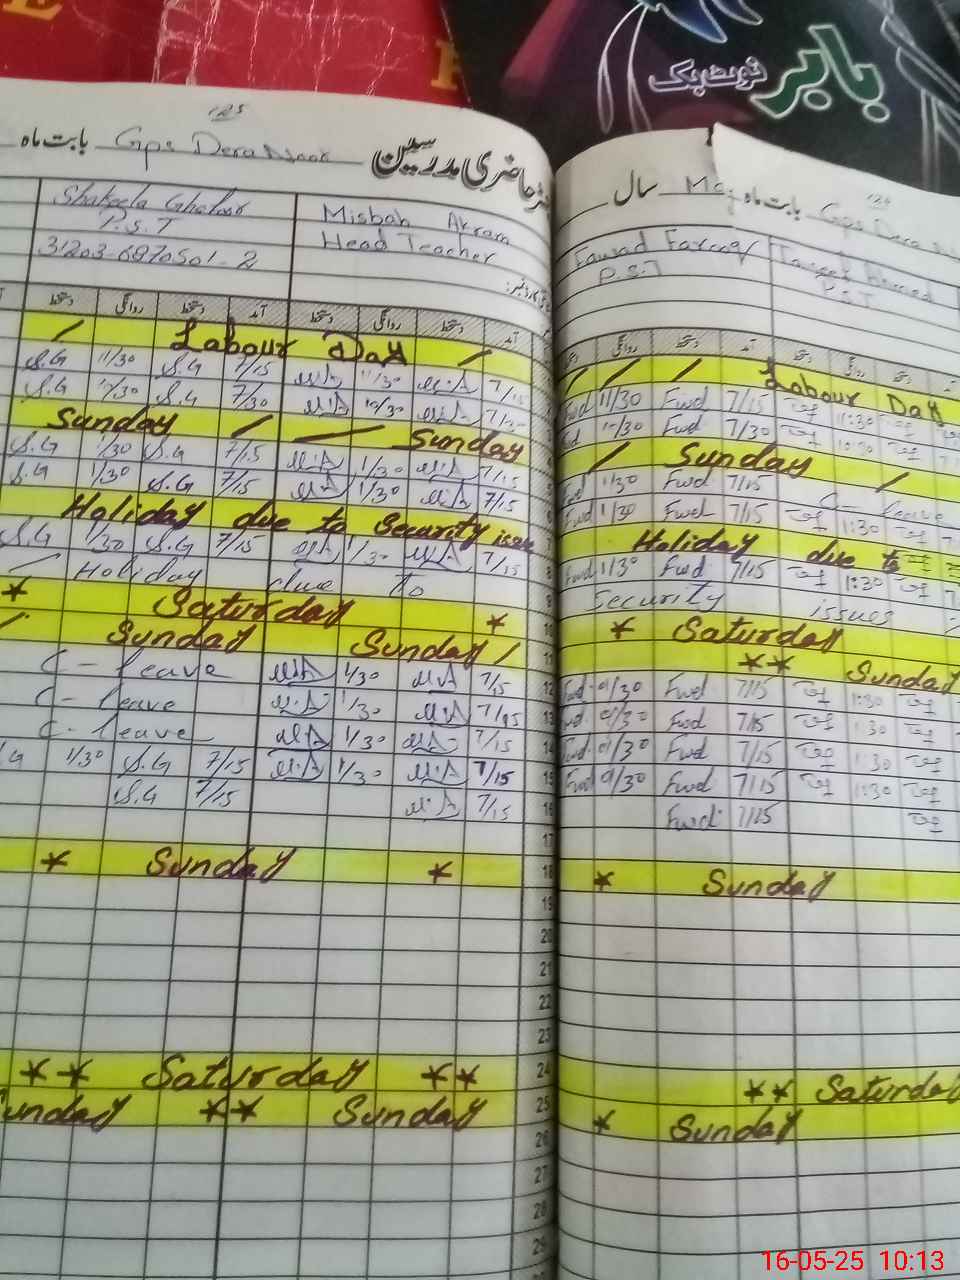 بابر
نوٹ بک
125
بابت ماہ Gps Dera Noor حاضری مدرسین
Shakeela Ghafoor
P.S.T
31203-6870501-2
Misbah Akram
Head Teacher
دستخط روانگی دستخط آمد دستخط روانگی دستخط آمد
/ Labour Day /
S.G 11/30 S.G 7/15 M.A 11/30 M.A 7/15
S.G 10/30 S.G 7/30 M.A 10/30 M.A 7/30
Sunday / — Sunday 4
S.G 1/30 S.G 7/15 M.A 1/30 M.A 7/15 5
S.G 1/30 S.G 7/15 M.A 1/30 M.A 7/15 6
Holiday due to Security issue
S.G 1/30 S.G 7/15 M.A 1/30 M.A 7/15 8
/ Holiday due To 9
* Saturday * 10
/ Sunday Sunday / 11
C-leave M.A 1/30 M.A 7/15 12
C-leave M.A 1/30 M.A 7/15 13
C-leave M.A 1/30 M.A 7/15 14
S.G 1/30 S.G 7/15 M.A 1/30 M.A 7/15 15
S.G 7/15 M.A 7/15 16
17
* Sunday * 18
19
20
21
22
23
** Saturday ** 24
Sunday ** Sunday 25
26
27
28
29
سال May بابت ماہ Gps Dera
Fawad Farooq
P.S.T
Tareek Ahmed
P.S.T
روانگی دستخط آمد دستخط روانگی دستخط
/ / / Labour Day
Fwd 11/30 Fwd 7/15 11:30
Fwd 10/30 Fwd 7/30 10:30
/ Sunday /
Fwd 1/30 Fwd 7/15 C-leave
Fwd 1/30 Fwd 7/15 1:30
Holiday due to
Fwd 1/30 Fwd 7/15 1:30
Security issues
* Saturday
** Sunday
Fwd 01/30 Fwd 7/15 1:30
Fwd 01/30 Fwd 7/15 1:30
Fwd 01/30 Fwd 7/15 1:30
Fwd 01/30 Fwd 7/15 1:30
Fwd 7/15
* Sunday
** Saturday
* Sunday
16-05-25 10:13